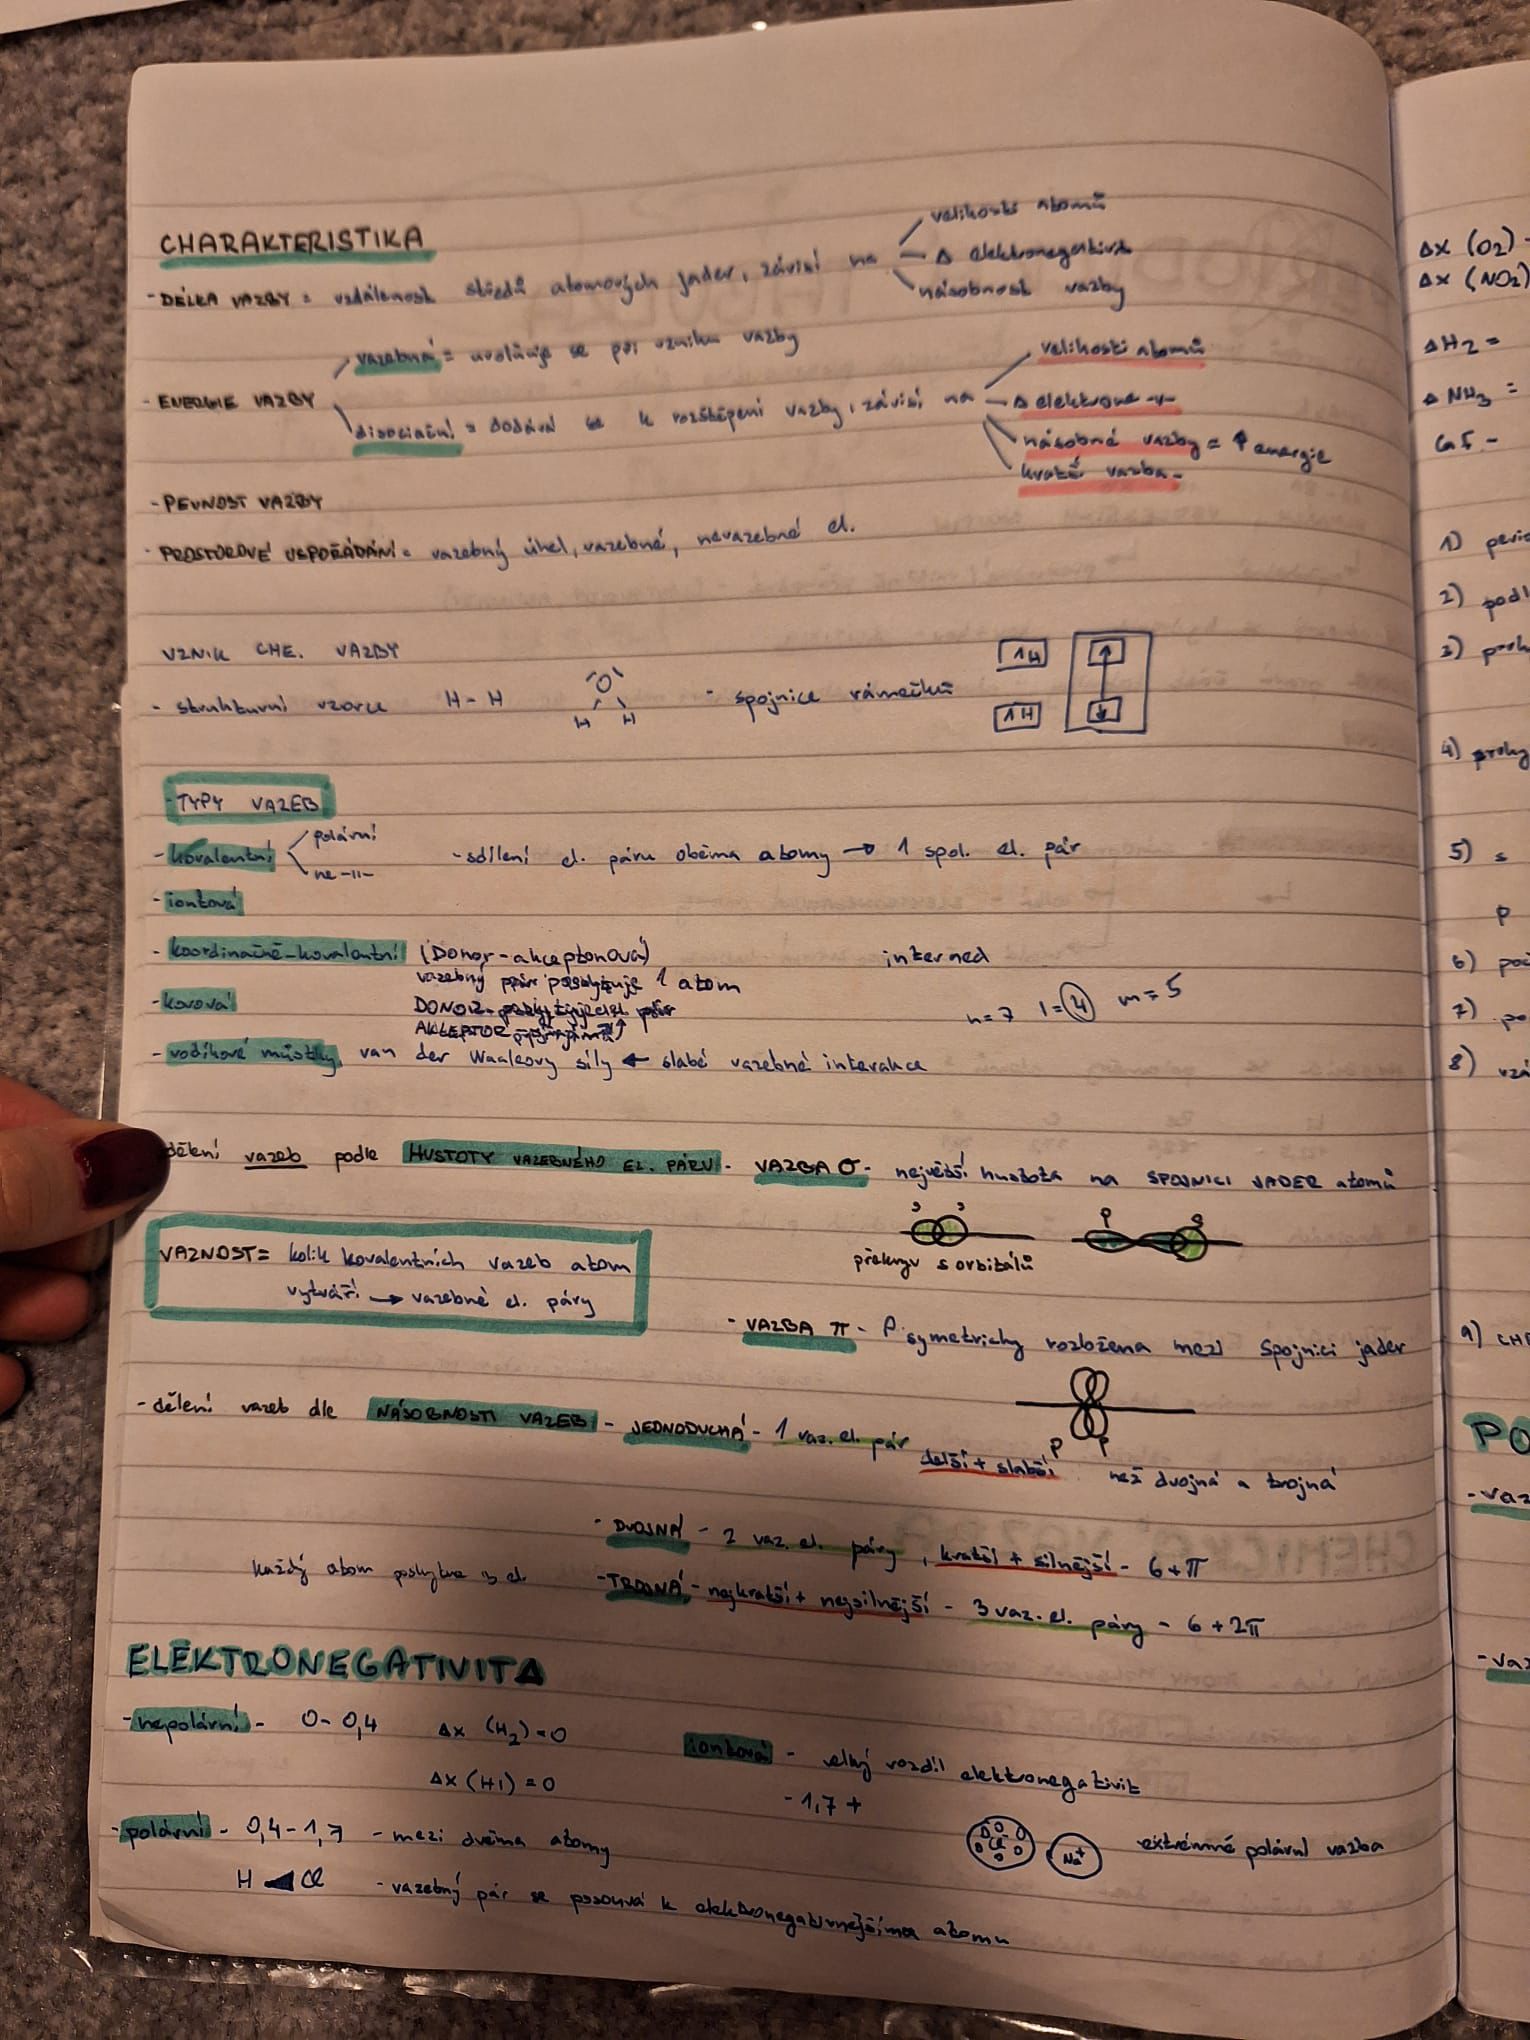 CHARAKTERISTIKA
- DÉLKA VAZBY = vzdálenost středů atomových jader, závisí na
velikosti atomů
Δ elektronegativit
násobnost vazby
- ENERGIE VAZBY
vazebná = uvolňuje se při vzniku vazby
disociační = dodává se k rozštěpení vazby, závisí na
velikosti atomů
Δ elektrone -"-
násobné vazby = ↑ energie
kratší vazba -
- PEVNOST VAZBY
- PROSTOROVÉ USPOŘÁDÁNÍ = vazebný úhel, vazebné, nevazebné el.
VZNIK CHE. VAZBY
- strukturní vzorce H - H
O
H H
- spojnice rámečků
1H ↑
1H ↓
- TYPY VAZEB
- kovalentní
polární
ne -"-
- sdílení el. páru oběma atomy → 1 spol. el. pár
- iontová
- koordinačně-kovalentní (Donor-akceptonová)
interned
vazebný pár poskytuje 1 atom
- kovová
DONOR - poskytuje el. pár
AKCEPTOR přijímá
n=7 l=4 m=5
- vodíkové můstky, van der Waalsovy síly ← slabé vazebné interakce
dělení vazeb podle HUSTOTY VAZEBNÉHO EL. PÁRU - VAZBA σ - největší hustota na SPOJNICI JADER atomů
s s
p s
překryv s orbitálů
VAZNOST = kolik kovalentních vazeb atom
vytváří → vazebné el. páry
- VAZBA π - P symetricky rozložena mezi spojnici jader
p p
- dělení vazeb dle NÁSOBNOSTI VAZEB - JEDNODUCHÁ - 1 vaz. el. pár
delší + slabší než dvojná a trojná
- DVOJNÁ - 2 vaz. el. páry, kratší + silnější - б + π
každý atom poskytne 3 el.
- TROJNÁ - nejkratší + nejsilnější - 3 vaz. el. páry - б + 2π
ELEKTRONEGATIVITA
- nepolární - 0 - 0,4 Δx (H2) = 0
Δx (HI) = 0
iontová - velký rozdíl elektronegativit
- 1,7 +
Cl Na+ extrémně polární vazba
- polární - 0,4 - 1,7 - mezi dvěma atomy
H Cl - vazebný pár se posouvá k elektronegativnějšímu atomu
Δx (O2) -
Δx (NO2)
ΔH2 =
ΔNH3 =
CaF -
1)
2) podl
3)
4)
5) s
p
6)
7) po
8) vzá
9) CH
PO
- vaz
- vaz